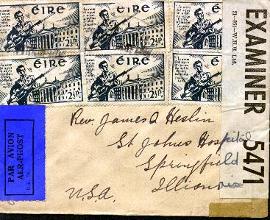 ÉIRE ÉIRE ÉIRE
ÉIRE ÉIRE ÉIRE
PAR AVION
AER-PHOST
EXAMINER 5471
Rev. James A Heslin
St Johns Hospital
Springfield
Illinois
U.S.A.